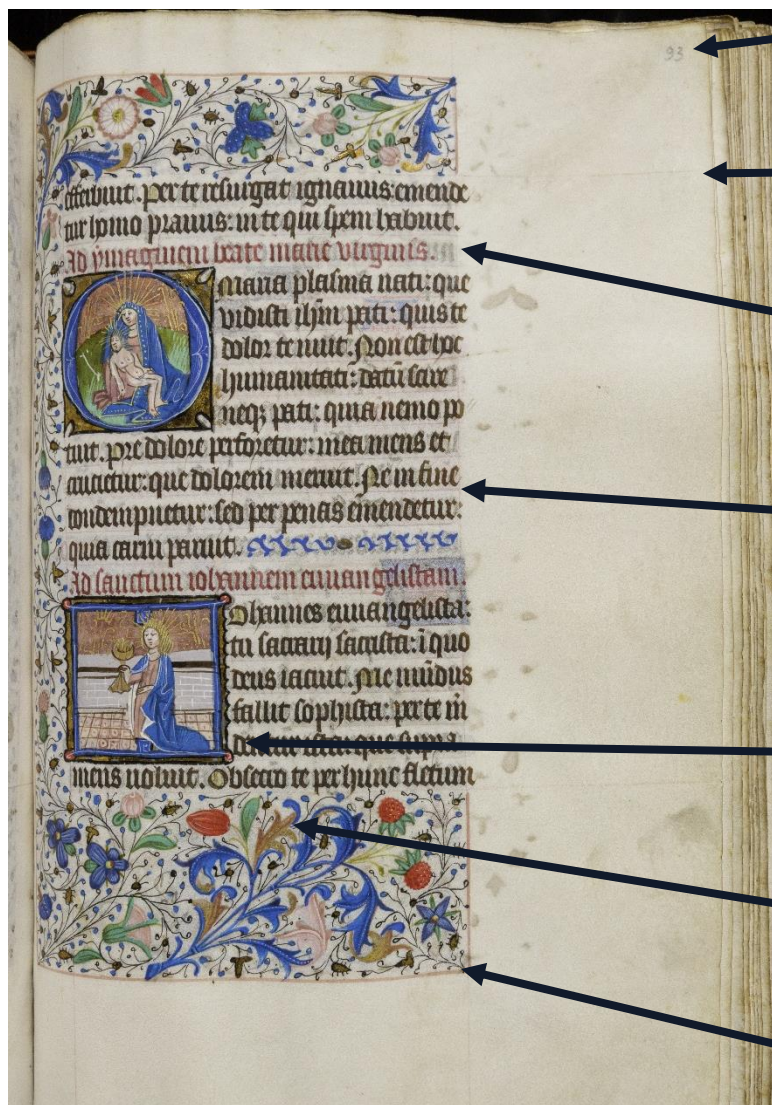 93
efferbuit. Per te resurgat ignauus: emende
tur homo prauus: in te qui spem habuit.
Ad ymaginem beate marie virginis.
O maria plasma nati: que
vidisti ihm pati: quis te
dolor tenuit. Non est hoc
humanitati: datu scire
neq; pati: quia nemo po
tuit. pre dolore perforetur: mea mens et
crucietur: que dolorem meruit. Ne in fine
condempnetur: sed per penas emendetur:
quia caru paruit.
Ad sanctum iohannem euuangelistam.
Iohannes euuangelista:
tu sacrarij sacrista: i quo
deus iacuit. Me mudus
fallit sophista: per te m
ista: que supra
mens uoluit. Obsecro te per hunc fletum